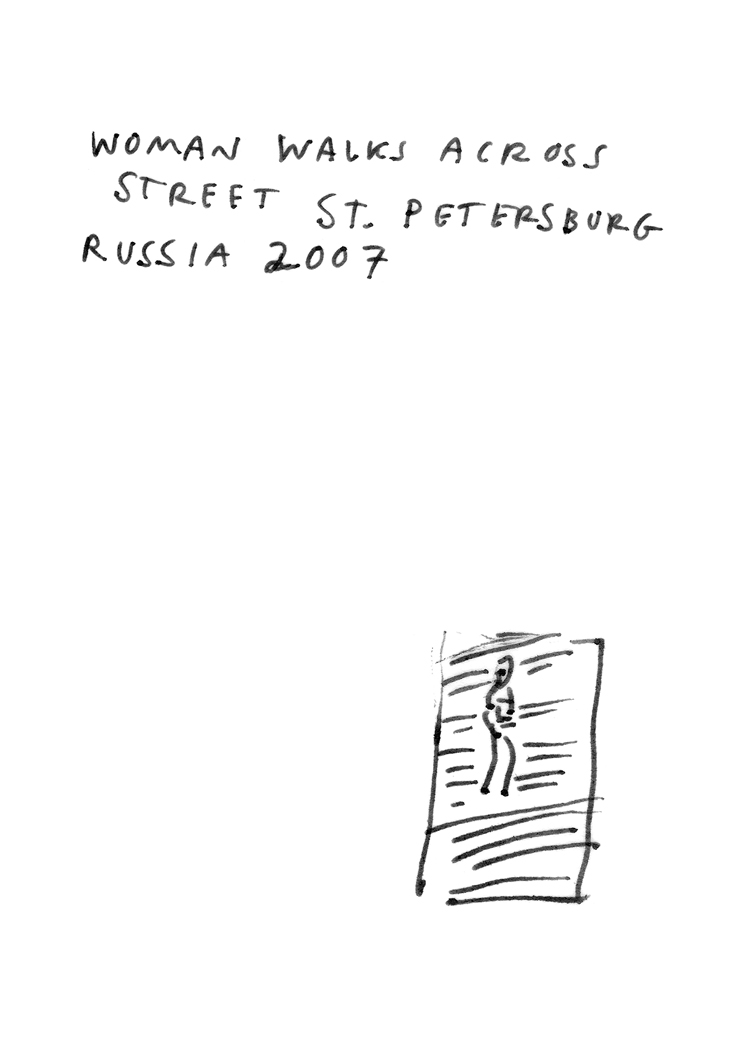 WOMAN WALKS ACROSS
STREET ST. PETERSBURG
RUSSIA 2007